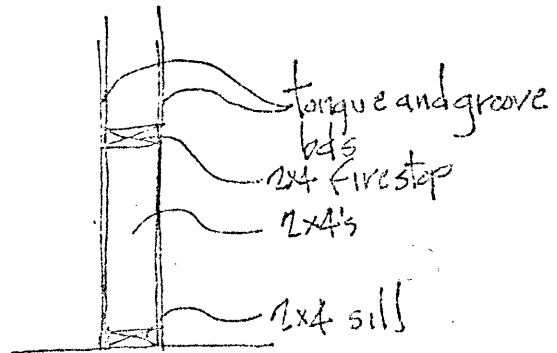 tongue and groove
bds
2x4 firestop
2x4's
2x4 sill